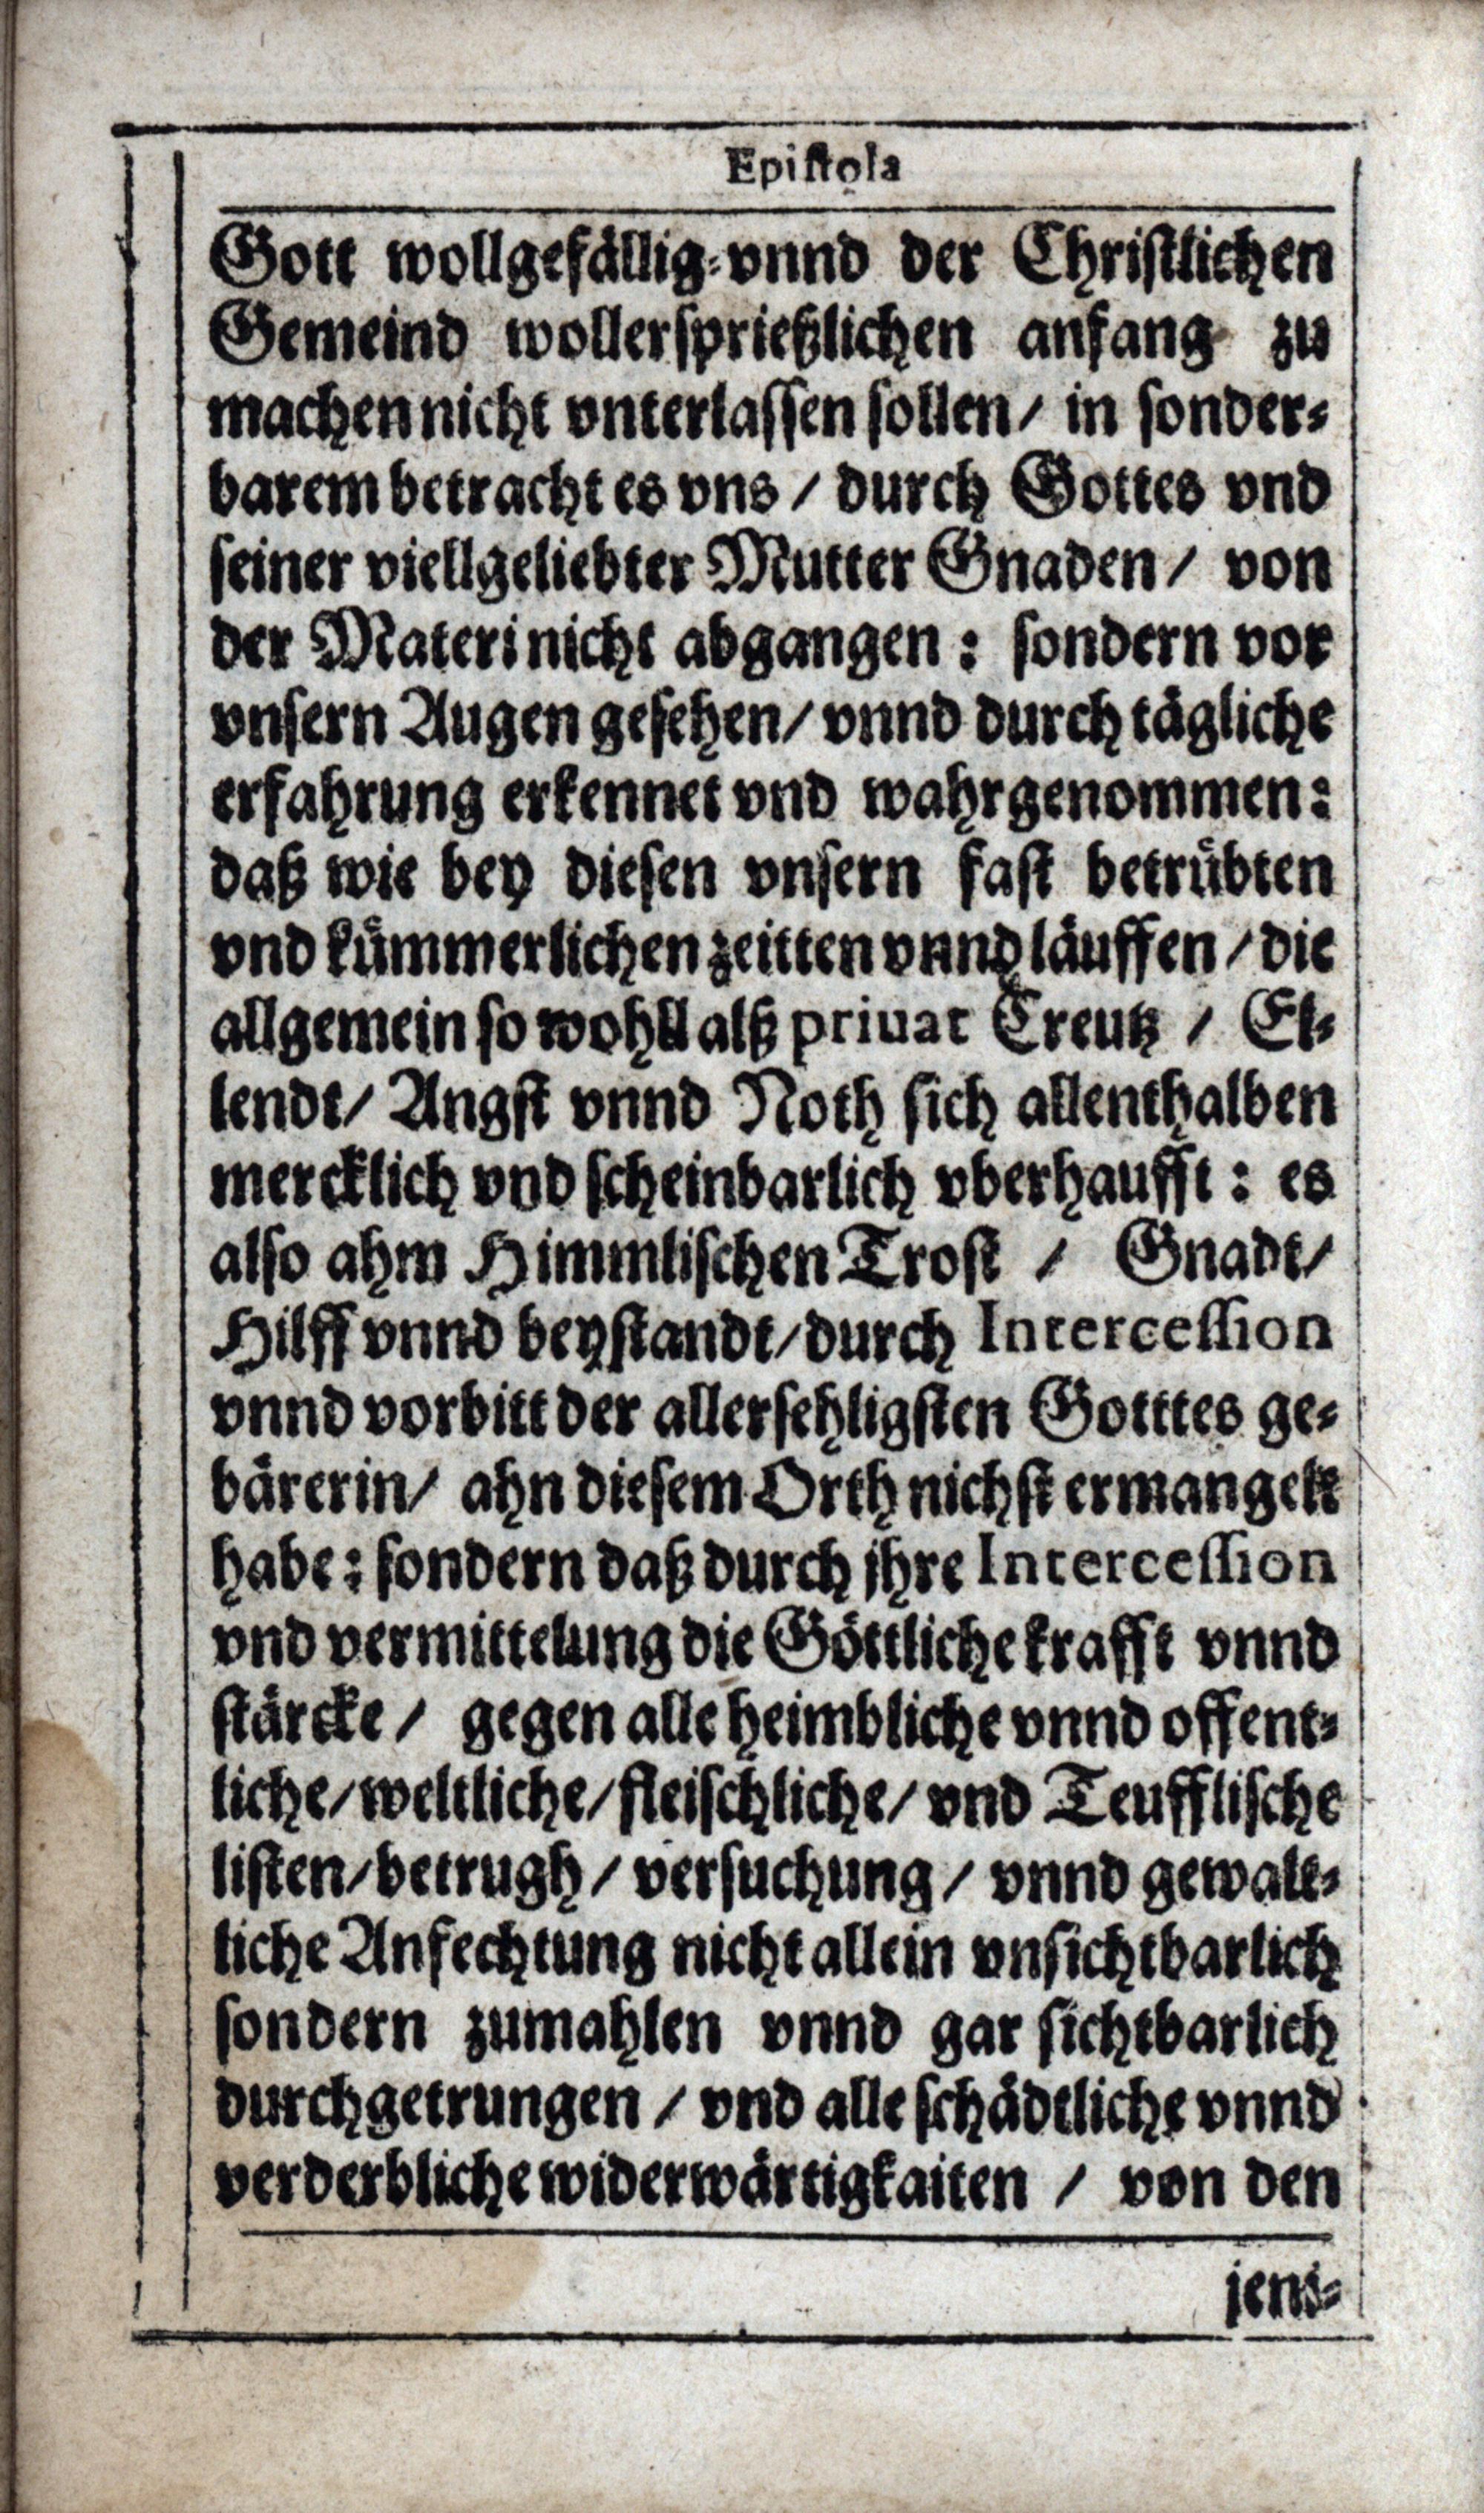 Epistola
Gott wollgefällig-vnnd der Christlichen
Gemeind wollersprießlichen anfang zu
machen nicht vnterlassen sollen / in sonder-
barem betracht es vns / durch Gottes vnd
seiner viellgeliebter Mutter Gnaden / von
der Materi nicht abgangen: sondern vor
vnsern Augen gesehen / vnnd durch tägliche
erfahrung erkennet vnd wahrgenommen:
daß wie bey diesen vnsern fast betrübten
vnd kümmerlichen zeitten vnnd läuffen / die
allgemein so wohll alß priuat Creutz / El-
lendt / Angst vnnd Noth sich allenthalben
mercklich vnd scheinbarlich vberhaufft: es
also ahm Himmlischen Trost / Gnadt /
Hilff vnnd beystandt / durch Intercession
vnnd vorbitt der allersehligsten Gotttes ge-
bärerin / ahn diesem Orth nichst ermangelt
habe: sondern daß durch jhre Intercession
vnd vermittelung die Göttliche krafft vnnd
stärcke / gegen alle heimbliche vnnd offent-
liche / weltliche / fleischliche / vnd Teufflische
listen / betrugh / versuchung / vnnd gewalt-
liche Anfechtung nicht allein vnsichtbarlich
sondern zumahlen vnnd gar sichtbarlich
durchgetrungen / vnd alle schädtliche vnnd
verderbliche widerwärtigkaiten / von den
jeni-